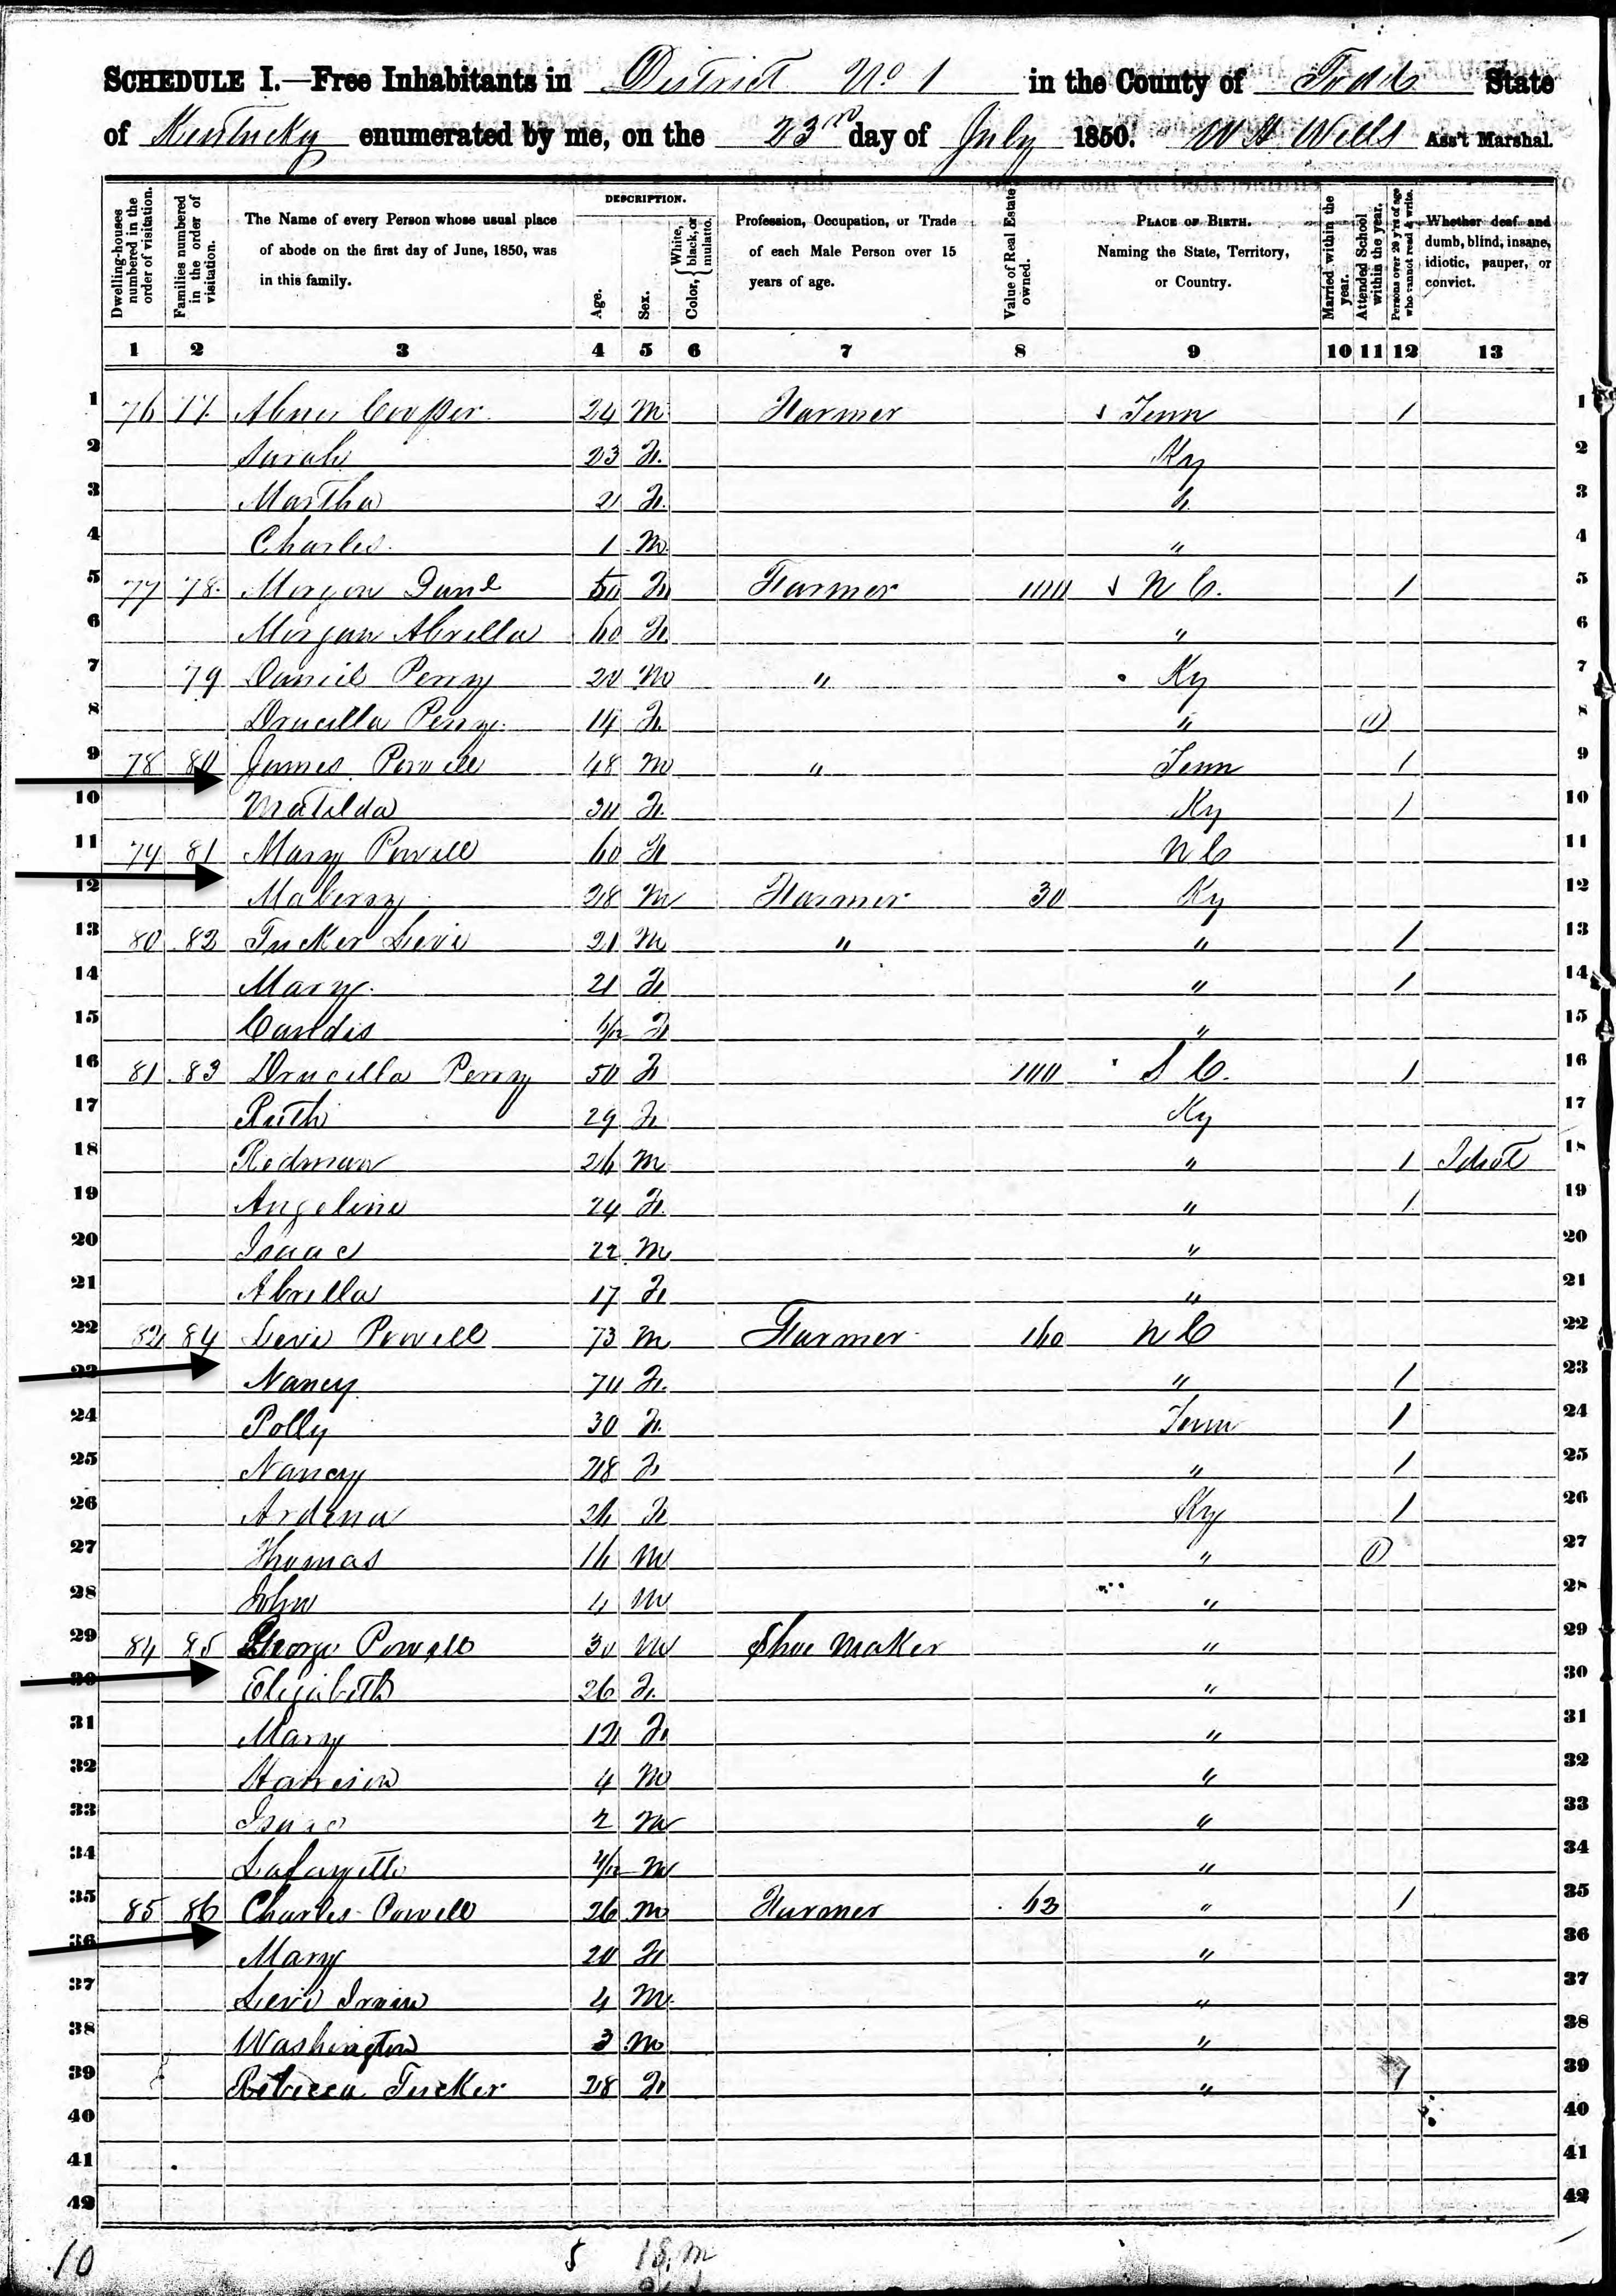 SCHEDULE I.—Free Inhabitants in District No 1 in the County of Todd State
of Kentucky enumerated by me, on the 23rd day of July 1850. W H Wells Ass't Marshal.
Dwelling-houses numbered in the order of visitation.
Families numbered in the order of visitation.
The Name of every Person whose usual place of abode on the first day of June, 1850, was in this family.
DESCRIPTION.
Age.
Sex.
Color, { White, black, or mulatto.
Profession, Occupation, or Trade of each Male Person over 15 years of age.
Value of Real Estate owned.
PLACE OF BIRTH. Naming the State, Territory, or Country.
Married within the year.
Attended School within the year.
Persons over 20 y'rs of age who cannot read & write.
Whether deaf and dumb, blind, insane, idiotic, pauper, or convict.
1 2 3 4 5 6 7 8 9 10 11 12 13
1 76 77 Abner Cooper 24 M Farmer Tenn 1 1
2 Sarah 23 F. Ky 2
3 Martha 2 F. " 3
4 Charles 1 M " 4
5 77 78 Morgan 50 F Farmer 100 N C. 1 5
6 Morgan Abrilla 60 F " 6
7 79 Daniel Penny 20 M " Ky 7
8 Drucilla Penny 14 F. " 1 8
9 78 80 James Powell 48 M " Tenn 1 9
10 Matilda 34 F. Ky 1 10
11 79 81 Mary Powell 60 F N C 11
12 Maberry 28 M Farmer 30 Ky 12
13 80 82 Tucker Levi 21 M " " 1 13
14 Mary 21 F " 1 14
15 Candis F " 15
16 81 83 Drucilla Penny 50 F 100 S C. 1 16
17 Ruth 29 F. Ky 17
18 Redman 26 M " 1 Idiot 18
19 Angeline 24 F. " 1 19
20 Isaac 22 M " 20
21 Abrilla 17 F " 21
22 82 84 Levi Powell 73 M Farmer 160 N C 22
23 Nancy 70 F. " 1 23
24 Polly 30 F. Tenn 1 24
25 Nancy 28 F " 1 25
26 Ardena 26 F Ky 1 26
27 Thomas 16 M " 1 27
28 John 4 M " 28
29 84 85 George Powell 30 M Shoe Maker " 29
30 Elizabeth 26 F. " 30
31 Mary 12 F " 31
32 Harrison 4 M " 32
33 Isaac 2 M " 33
34 Lafayette 4/12 M " 34
35 85 86 Charles Powell 26 M Farmer 63 " 1 35
36 Mary 20 F " 36
37 Levi Irvin 4 M. " 37
38 Washington 3 M " 38
39 Rebecca Tucker 28 F " 1 39
40 40
41 41
42 42
10 18 m